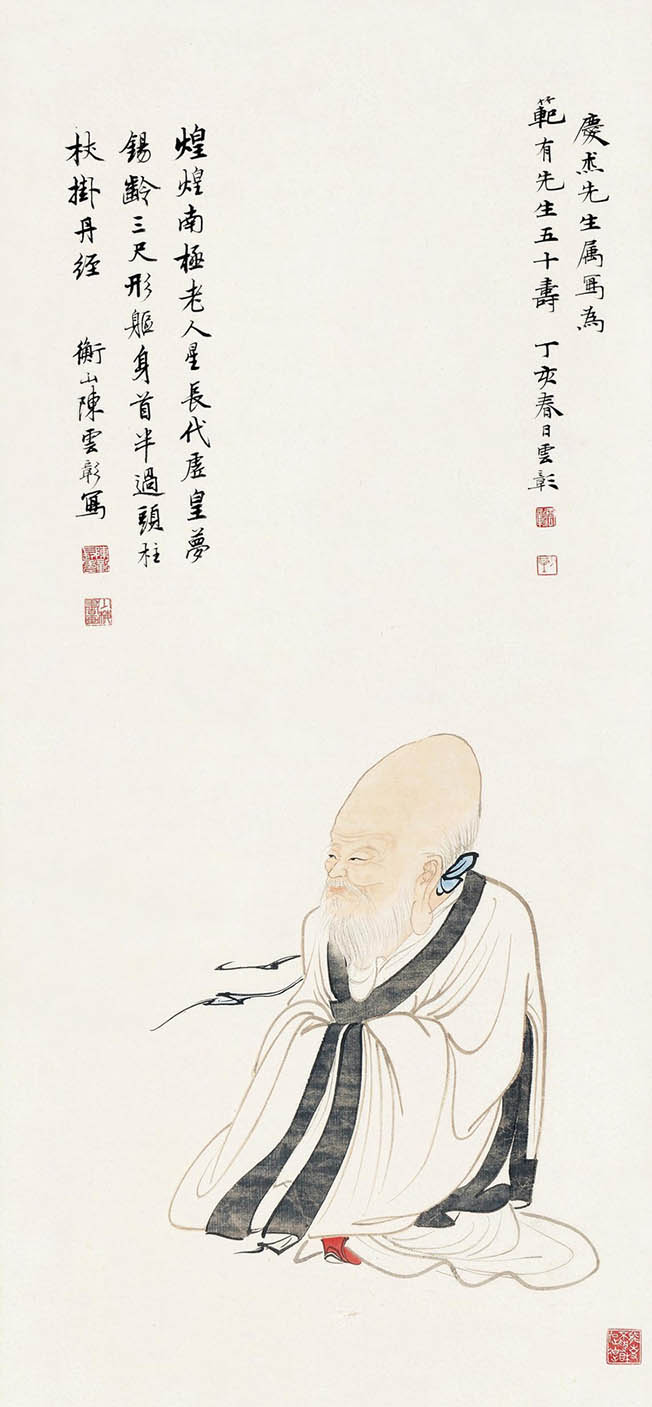 慶杰先生属寫為
範有先生五十壽 丁亥春日雲彰
煌煌南極老人星長代虛皇夢
錫齡三尺形軀身首半過頭柱
杖掛丹經 衡山陳雲彰寫